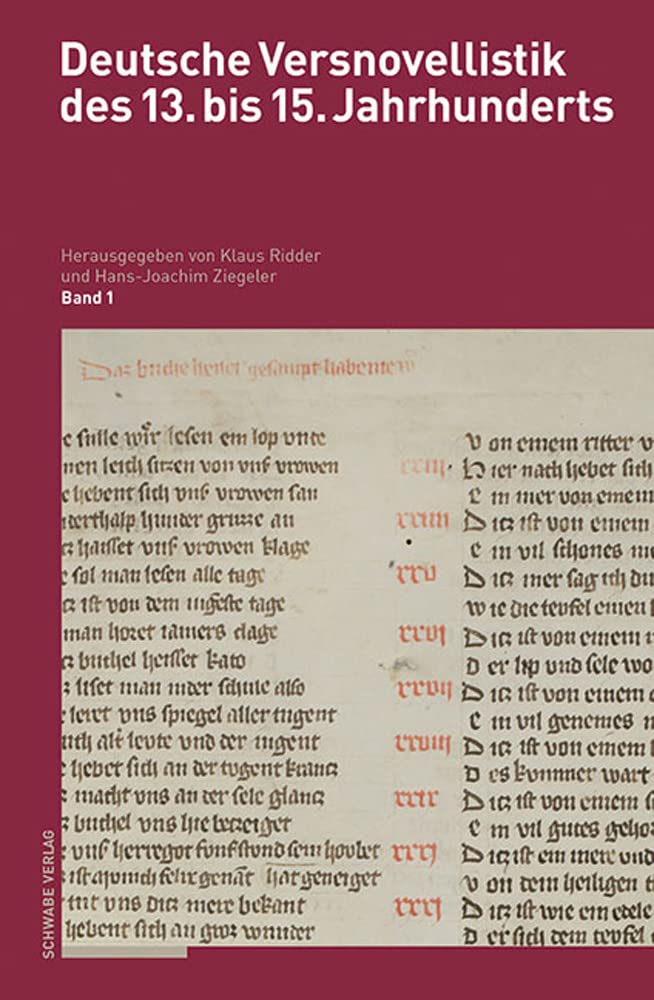 Deutsche Versnovellistik
des 13. bis 15. Jahrhunderts
Herausgegeben von Klaus Ridder
und Hans-Joachim Ziegeler
Band 1
SCHWABE VERLAG
Daz buche heiset gesampt habentew
e sulle wir lesen ein lop vnte
nen leich sitzen von vnser vrowen
e hebent sich vnser vrowen
hunder gruzze an
haisset vnser vrowen klage
e sol man lesen alle tage
ist von dem iugeste tage
man horet iamers clage
buchel heisset kato
liset man in der schule also
leret vns spiegel aller tugent
alt levte vnd der iugent
hebet sich an der tugent krantz
macht vns an der sele glantz
buchel vns hie betzeiget
vnser herregot funfstund sein hovbet
ist genant hat geneiget
tut vns ditz mere bekant
hebent sich an groz wunder
Von einem ritter v
xxiij. Hier nach hebet sich
Ein mer von einem
xxiiij Ditz ist von einem
Ein vil schones me
xxv Ditz mer sag ich du
wie die tevfel einen
xxvj Ditz ist von einem
Der lip vnd sele wo
xxvij Ditz ist von einem
Ein vil genemes m
xxviij Ditz ist von einem
Des kvmmer wart
xxix Ditz ist von einem
Ein vil gutes
xxxj Ditz ist ein mere vnd
Von dem heiligen
xxxj Ditz ist wie ein edele
Der sich dem tevfel